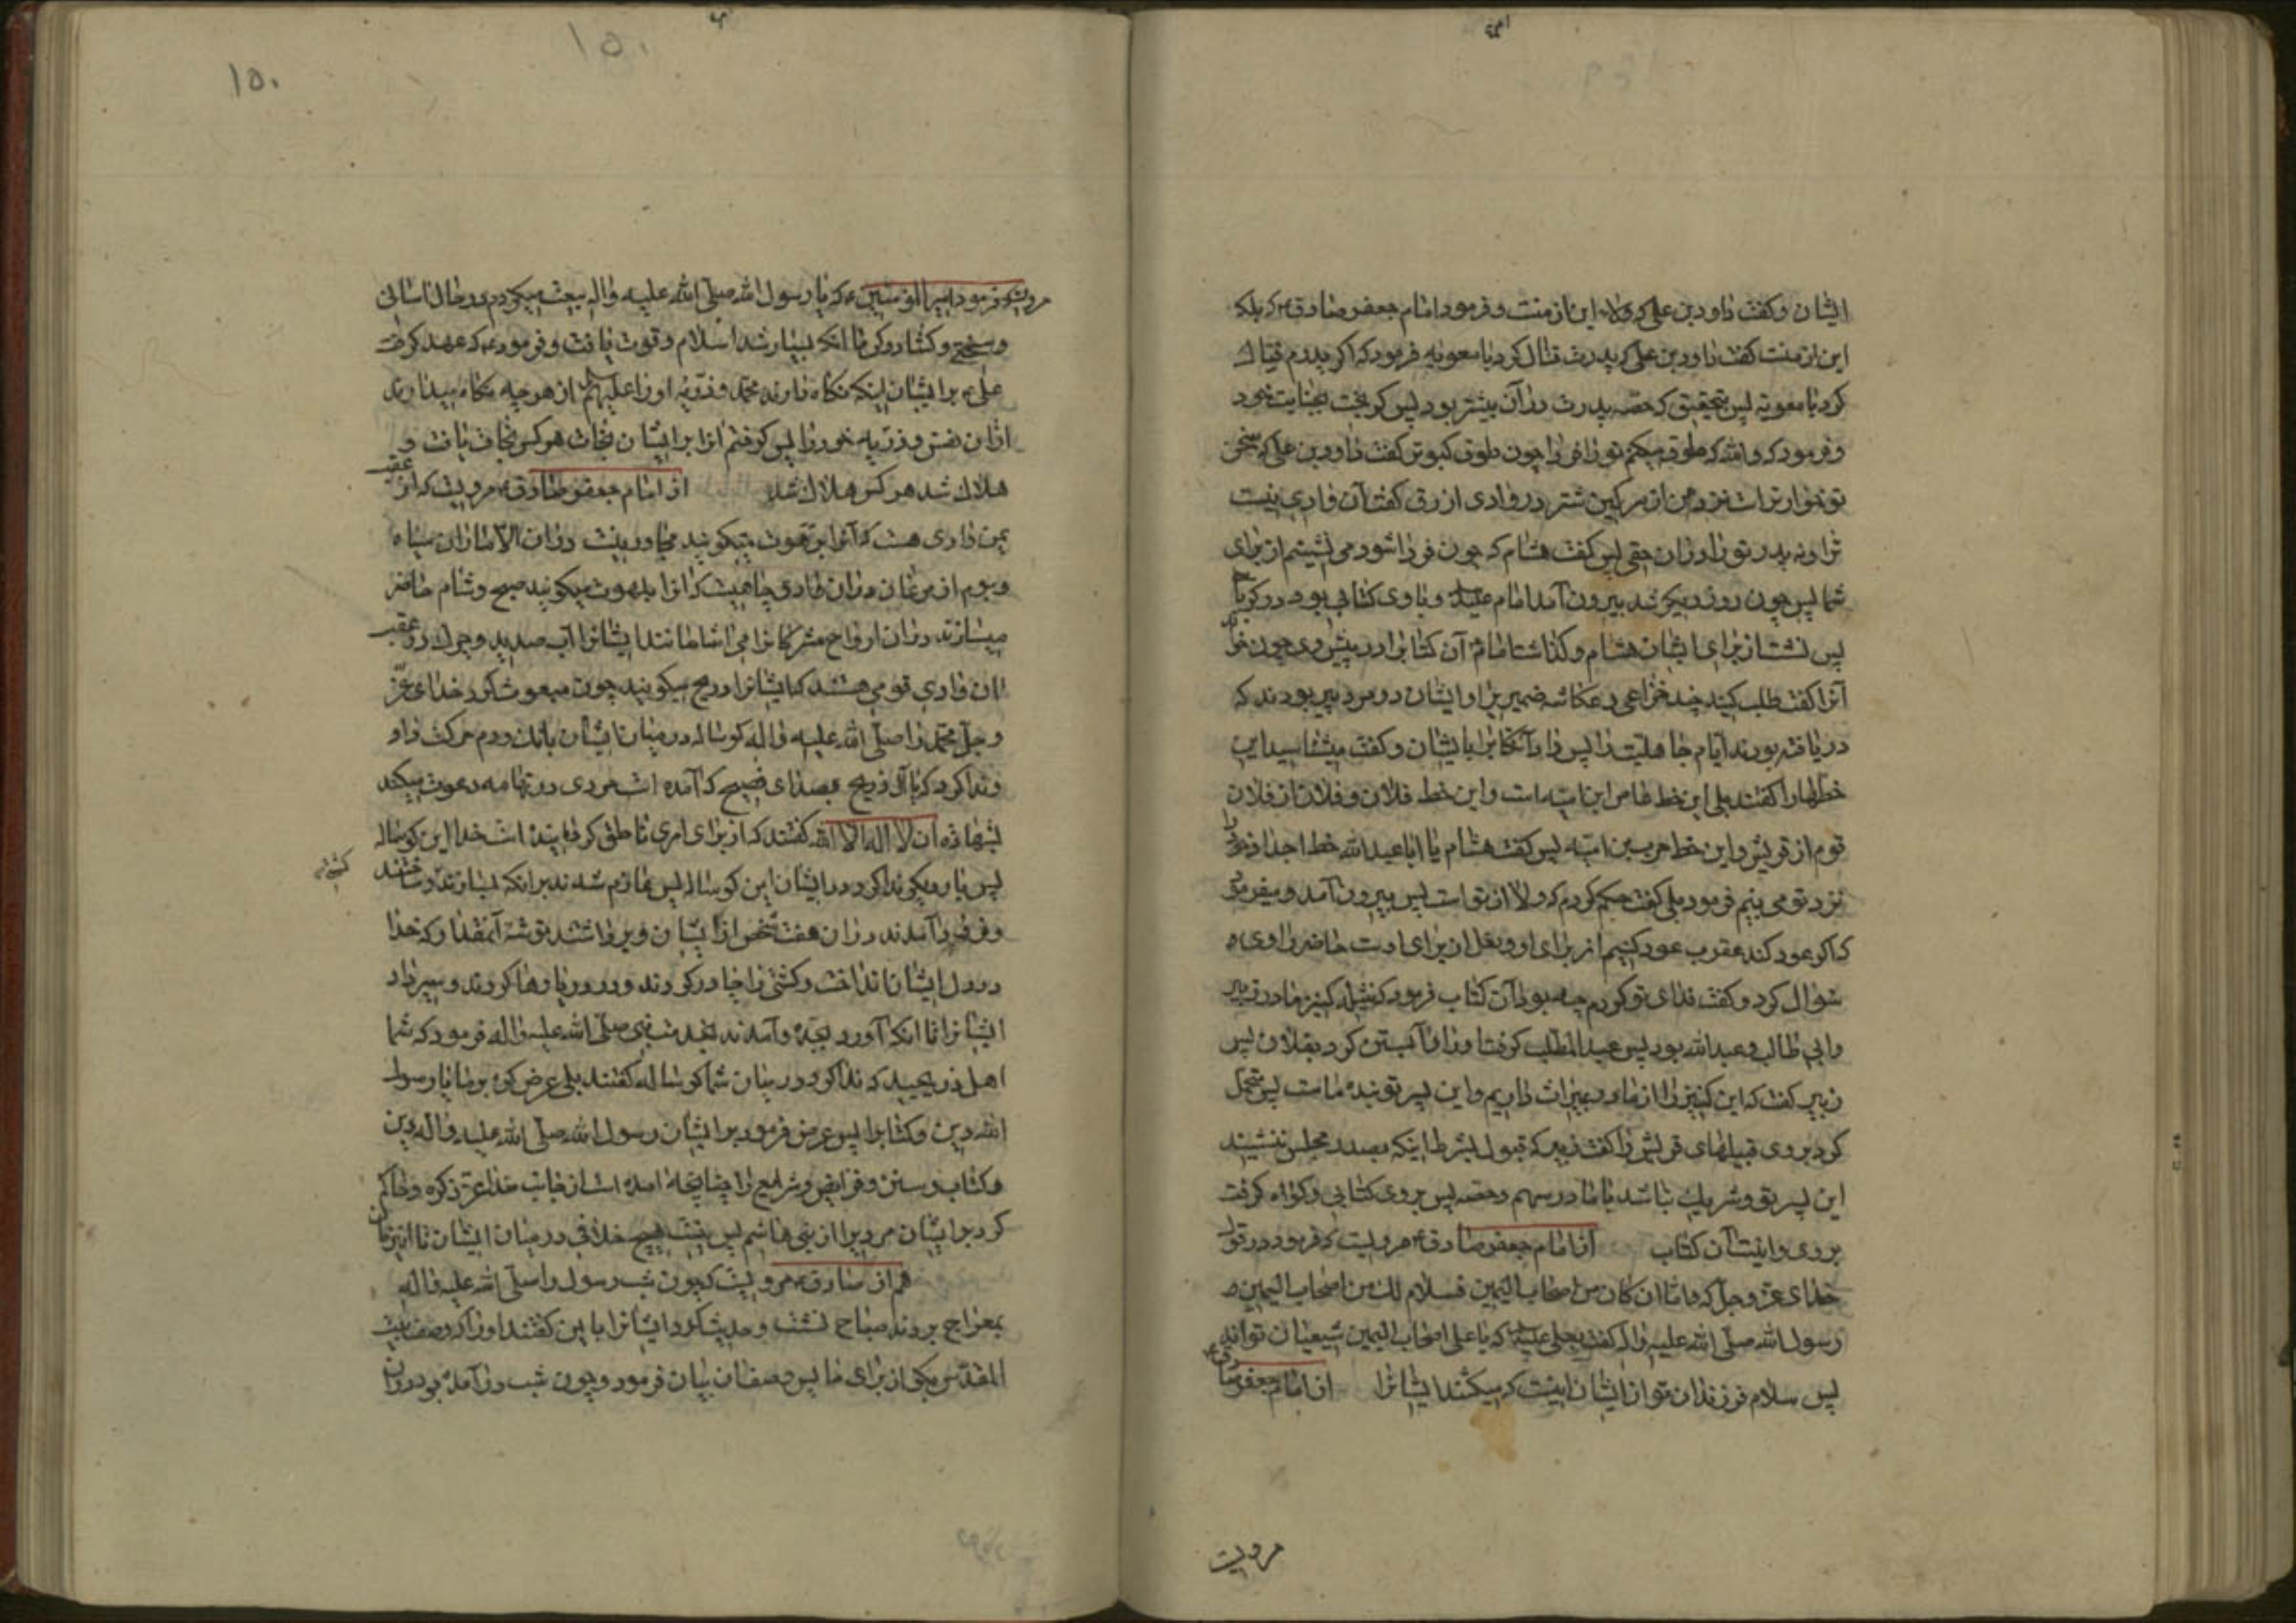 ایشان و کفت داود بن علی که ولاء این از منست و فرمود امام جعفر صادق ع که بلکه
این از منست کفت داود بن علی که پدرت قتال کرد با معویه فرمود که اکر پدرم قتال
کرد با معویه پس بتحقیق که حصه پدرت در آن بیشتر بود پس کریخت بخیانت خود
و فرمود که والله که طوق میکنم تو را فردا چون طوق کبوتر کفت داود بن علی که سخن
تو خوارتر است نزد من از سرکین شتر در وادی ازرق کفت آن وادی نیست
ترا و نه پدر تو را در آن حقی پس کفت هشام که چون فردا شود می نشینم از برای
شما پس چون روز دیکر شد بیرون آمد امام علیه و با وی کتابی بود در کرباس
پس نشست از برای ایشان هشام و کذاشت امام آن کتابرا در پیش وی چون خواند
آنرا کفت طلب کنید چند خزاعی و عکاشه ضمیریرا و ایشان دو مرد پیر بودند که
دریافته بودند ایام جاهلیت را پس داد آنکتابرا بایشان و کفت میشناسید این
خطها را کفتند بلی این خط عاص ابن امیه است و این خط فلان و فلان از فلان
قوم از قریش و این خط حرب بن امیه پس کفت هشام یا ابا عبدالله خط اجداد خود را
نزد تو می بینم فرمود بلی کفت حکم کردم که ولا از تو است پس بیرون آمد و میفرمود
که اکر عود کند عقرب عود کنیم از برای او و نعل از برای اوست حاضر راوی ه
سؤال کرد و کفت فدای تو کردم چه بود آن کتاب فرمود که نثیله کنیز مادر زبیر
و ابی طالب و عبدالله بود پس عبدالمطلب کرفت او را و آبستن کرد بفلان پس
زبیر کفت که این کنیز را از مادر بمیراث داریم و این پسر تو بنده ماست پس تحمل
کرد بروی قبیلهای قریش را کفت زبیر که قبول بشرط اینکه بصدر مجلس ننشیند
این پسر تو و شریک نباشد با ما در سهم و حصه پس بروی کتابی و کواه کرفت
بروی و اینست آن کتاب از امام جعفر صادق ع مرویست که فرمود در قول
خدای عز و جل که و اما ان کان من اصحاب الیمین فسلام لک من اصحاب الیمین ه
رسول الله صلی الله علیه و اله کفت بعلی علیه که یا علی اصحاب الیمین شیعیان تواند
پس سلام فرزندان تو از ایشان اینست که میکشند ایشانرا از امام جعفر صادق ع
مرویست
۱۵۰
مرویست که فرمود امیر المؤمنین ع که با رسول الله صلی الله علیه و اله بیعت میکردم در حال آسانی
و سختی و کشاد و کرب تا انکه بسیار شد اسلام و قوت یافت و فرمود ع که عهد کرفت
علی ع بر ایشان اینکه نکاه دارند محمد و ذریه او را علیهم از هر چه نکاه میدارند
از ان نفس و ذریه خود را پس کرفتم انرا بر ایشان نجات هر کس نجات یافت و
هلاک شد هر کس هلاک شد از امام جعفر صادق ع مرویست که از عقب
یمن وادی هست که آنرا برهوت میکویند مجاور نیست در ان الا ماران سیاه
و بوم از مرغان در ان وادی چاهیست که انرا بلهوت میکویند صبح و شام حاضر
میسازند در ان ارواح مشرکانرا می اشامانند ایشانرا آب صدید و چرک در عقب
ان وادی قومی هستند که ایشانرا ذریح میکویند چون مبعوث کرد خدای عز
و جل محمد را صلی الله علیه و اله کوساله در میان ایشان بانک و دم حرکت داد
و ندا کرد که یا آل ذریح بصدای فصیح که آمده است مردی در تهامه دعوت میکند
بشهادة ان لا اله الا الله کفتند که از برای امری ناطق کردانیده است خدا این کوساله
پس بار دیکر ندا کرد در ایشان این کوساله پس عازم شدند بر انکه بسازند و ساختند کشتی
و فرود آمدند در ان هفت شخص از ایشان و برداشتند توشه آنمقدار که خدا
در دل ایشان انداخت و کشتی را چادر کردند و در دریا رها کردند و سیر داد
ایشانرا تا انکه آورد بجده و آمدند بخدمت نبی صلی الله علیه و اله فرمود که شما
اهل ذریحید که ندا کرد در میان شما کوساله کفتند بلی عرض کن بر ما یا رسول
الله دین و کتابرا پس عرض فرمود بر ایشان رسول الله صلی الله علیه و اله دین
و کتاب و سنن و فرایض و شرایع را چنانچه امده است از جانب خدا عز ذکره و حاکم
کرد بر ایشان مردیرا از بنی هاشم پس نیست هیچ خلافی در میان ایشان تا این زمان
هم از صادق ع مرویست که چون شب رسول را صلی الله علیه و اله
بمعراج بردند صباح نشست و حدیث کرد ایشانرا باین کفتند او را که وصف بیت
المقدس بکو از برای ما پس وصف ان بیان فرمود و چون شب در آمده بود در ان